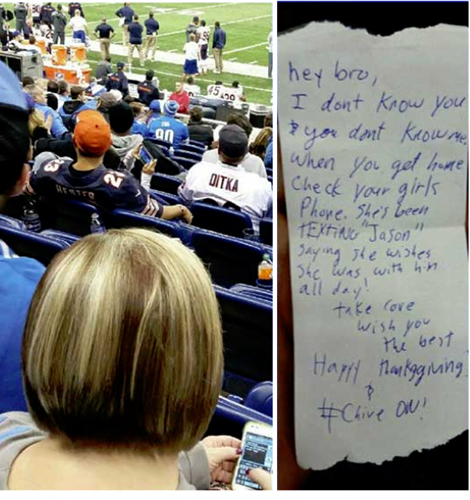 HESTER
23
90
DITKA
45
hey bro,
I dont know you
& you dont know me,
when you get home
Check your girls
Phone. She's been
TEXTING "Jason"
Saying she wishes
She was with him
all day!
take care
wish you
the best
Happy thanksgiving
&
#Chive ON!